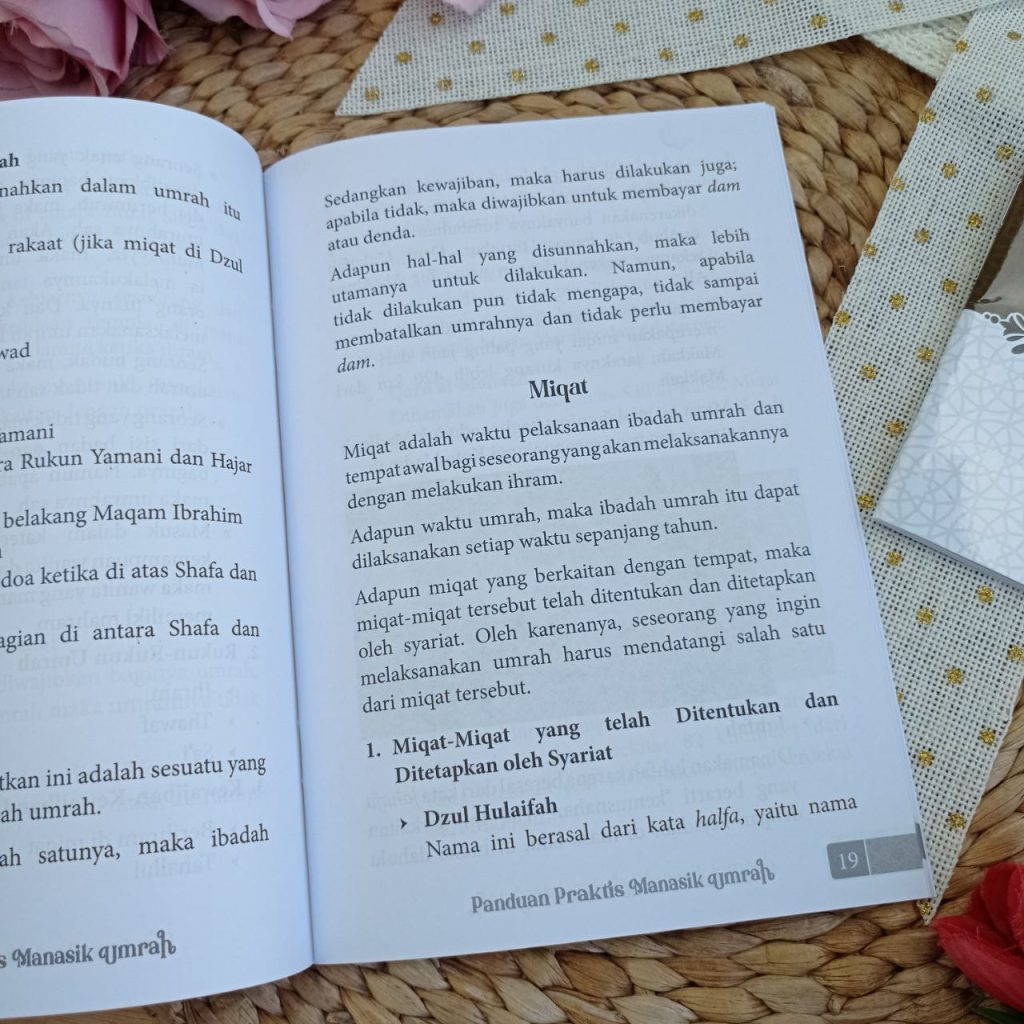 ah
nahkan dalam umrah itu
rakaat (jika miqat di Dzul
wad
amani
ra Rukun Yamani dan Hajar
belakang Maqam Ibrahim
doa ketika di atas Shafa dan
agian di antara Shafa dan
tkan ini adalah sesuatu yang
ah umrah.
ah satunya, maka ibadah
s Manasik Umrah
Sedangkan kewajiban, maka harus dilakukan juga;
apabila tidak, maka diwajibkan untuk membayar dam
atau denda.
Adapun hal-hal yang disunnahkan, maka lebih
utamanya untuk dilakukan. Namun, apabila
tidak dilakukan pun tidak mengapa, tidak sampai
membatalkan umrahnya dan tidak perlu membayar
dam.
Miqat
Miqat adalah waktu pelaksanaan ibadah umrah dan
tempat awal bagi seseorang yang akan melaksanakannya
dengan melakukan ihram.
Adapun waktu umrah, maka ibadah umrah itu dapat
dilaksanakan setiap waktu sepanjang tahun.
Adapun miqat yang berkaitan dengan tempat, maka
miqat-miqat tersebut telah ditentukan dan ditetapkan
oleh syariat. Oleh karenanya, seseorang yang ingin
melaksanakan umrah harus mendatangi salah satu
dari miqat tersebut.
1. Miqat-Miqat yang telah Ditentukan dan
Ditetapkan oleh Syariat
➤ Dzul Hulaifah
Nama ini berasal dari kata halfa, yaitu nama
19
Panduan Praktis Manasik Umrah